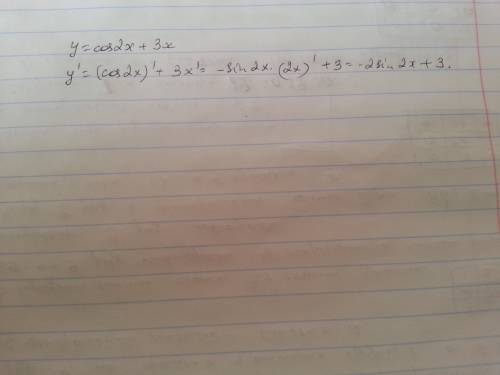 y = cos2x + 3x
y' = (cos2x)' + 3x' = -sin2x · (2x)' + 3 = -2sin2x + 3.